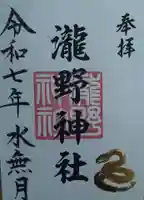 奉拝
瀧野神社
令和七年水無月